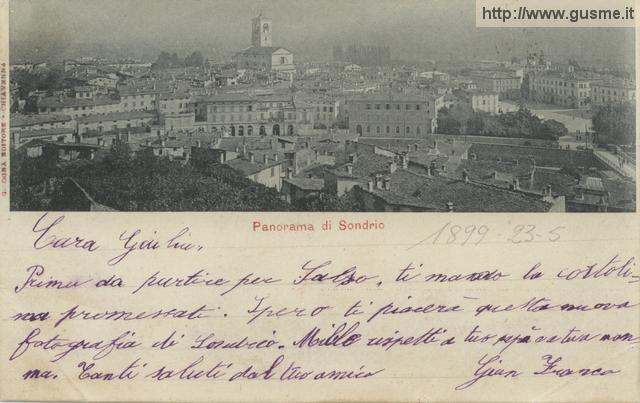 http://www.gusme.it
Panorama di Sondrio
1899-23-5
Cara
Prima da partire per Salso, ti mando la cartoli=
na promessati. Spero ti piacerà questa nuova
fotografia di Sondrio. Mille rispetti a tuo papà e a tua mam=
ma. Tanti saluti dal tuo amico
Gian Franco